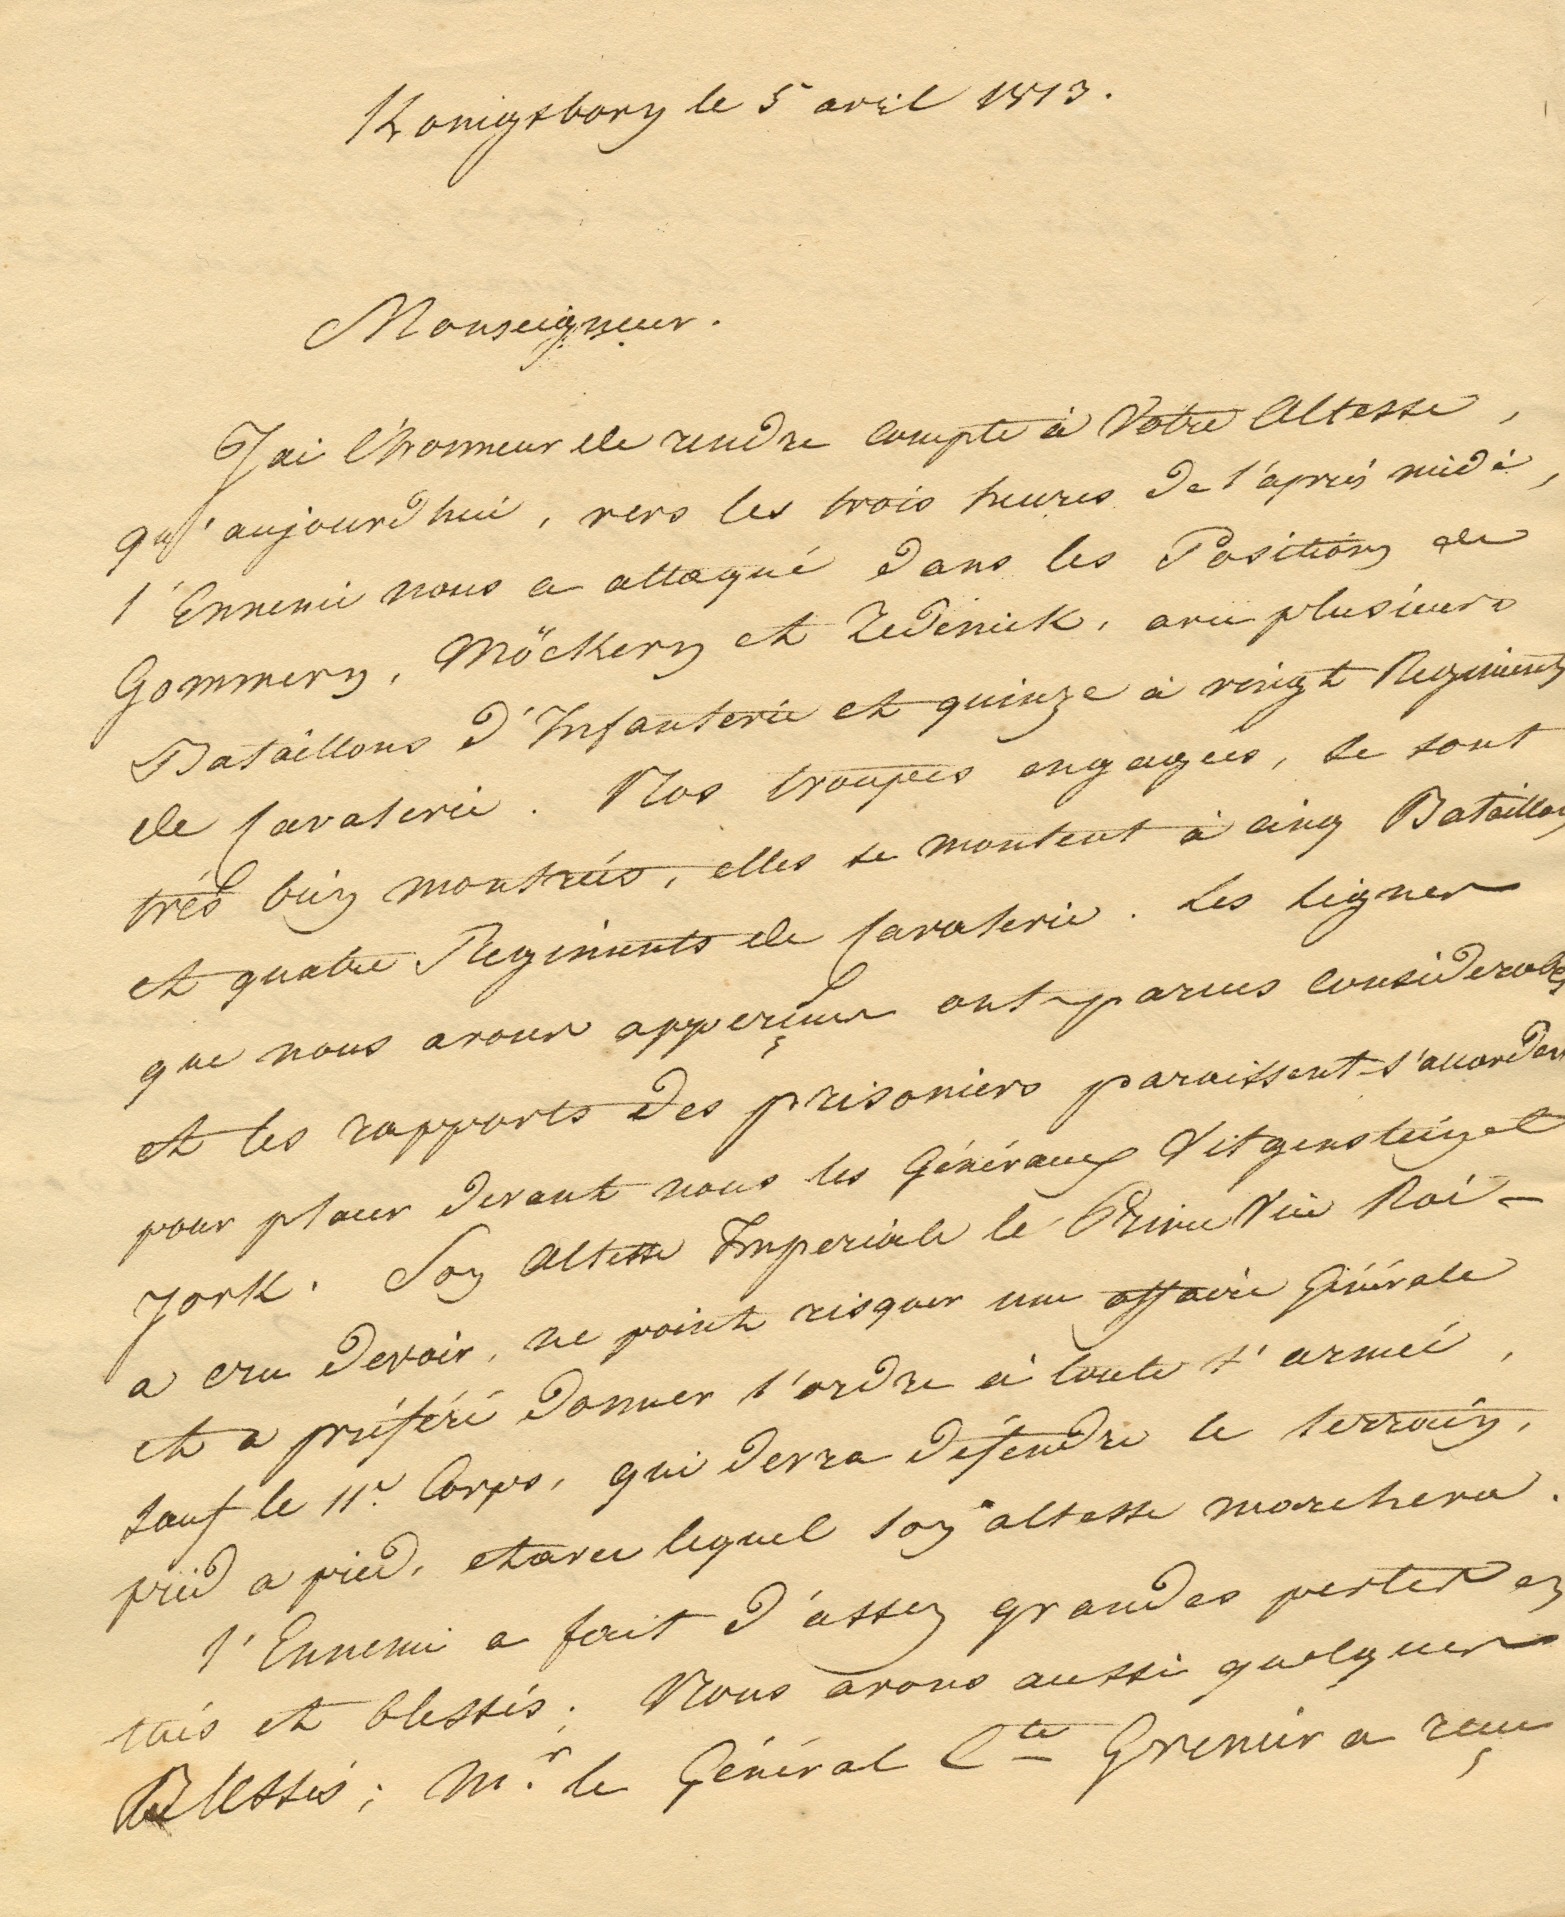 Konigsborn le 5 avril 1813.
Monseigneur.
J'ai l'honneur de rendre compte à Votre Altesse,
qu'aujourdhui, vers les trois heures de l'aprés midi,
l'Ennemi nous a attaqué dans les Position de
Gommern, Möckern et Zedenick, avec plusieurs
Bataillons d'Infanterie et quinze à vingt Regiments
de Cavalerie. Nos troupes engagées, se sont
trés bien montrées, elles se montent à cinq Bataillons
et quatre Regiments de Cavalerie. Les lignes
que nous avons apperçues ont parues considerables
et les rapports des prisoniers paraissent s'accorder
pour placer devant nous les Généraux Vitgenstein et
York. Son Altesse Imperiale le Prince Vice Roi
a cru devoir, ne point risquer une affaire Générale
et a préféré donner l'ordre à toute l'armée,
sauf le 11e Corps, qui devra défendre le terrain,
pied a pied, et avec lequel son altesse marchera.
l'Ennemi a fait d'assez grandes pertes en
tués et blessés; Nous avons aussi quelques
Blessés; Mr. le Général Cte Grenier a reçu